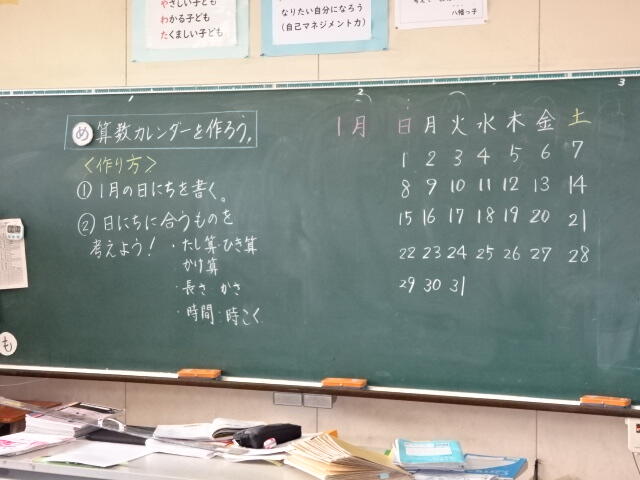 やさしい子ども
わかる子ども
たくましい子ども
なりたい自分になろう
(自己マネジメント力)
八幡っ子
1 2 3
め 算数カレンダーを作ろう。
<作り方>
① 1月の日にちを書く。
② 日にちに合うものを
考えよう! ・たし算・ひき算
かけ算
・長さ かさ
・時間:時こく
も
1月 日 月 火 水 木 金 土
1 2 3 4 5 6 7
8 9 10 11 12 13 14
15 16 17 18 19 20 21
22 23 24 25 26 27 28
29 30 31